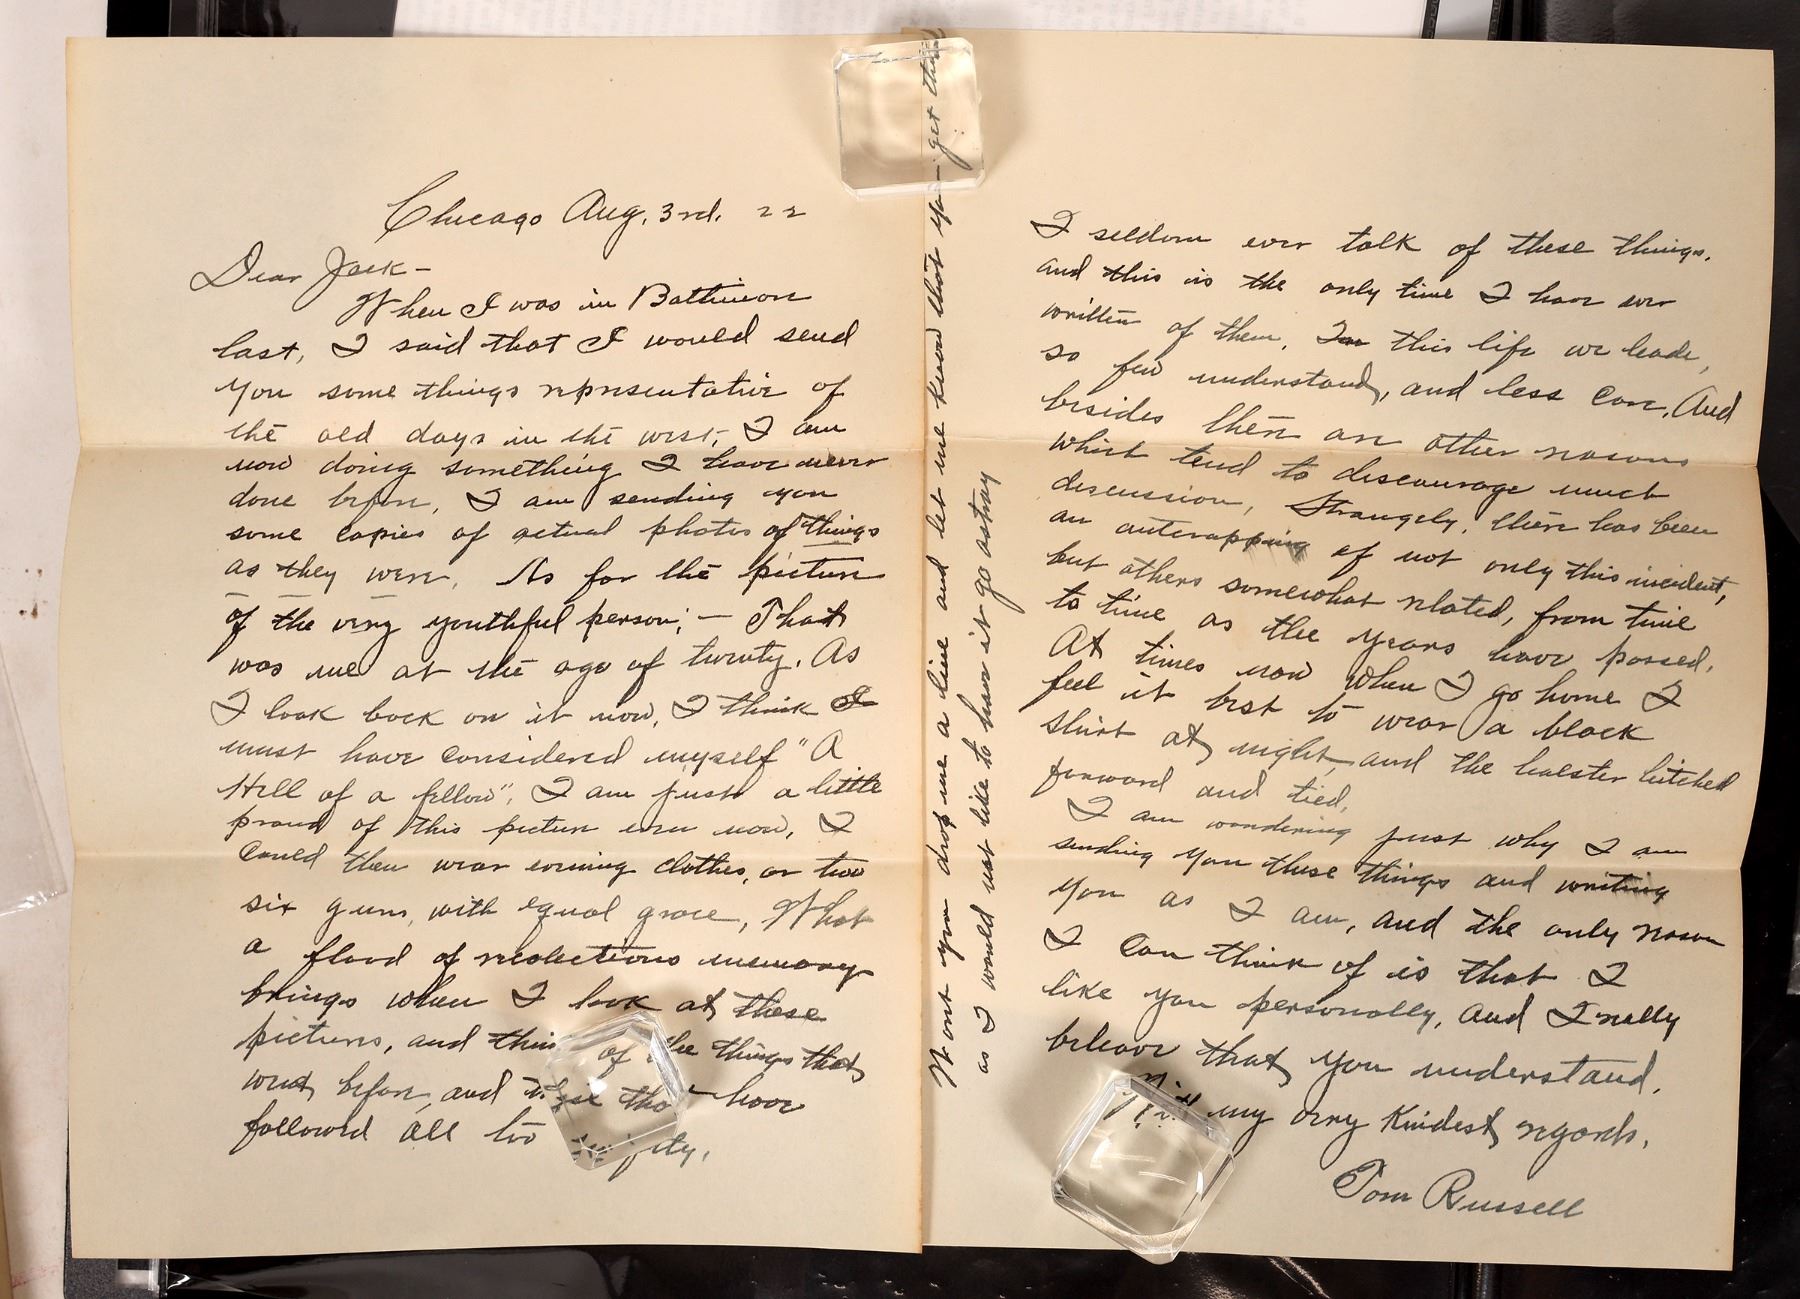 Chicago Aug. 3rd. 22
Dear Jack-
When I was in Baltimore
last, I said that I would send
you some things representative of
the old days in the west, I am
now doing something I have never
done before, I am sending you
some copies of actual photos of "things
as they were, As for the picture
of the very youthful person; - That
was me at the age of twenty. As
I look back on it now, I think I
must have considered myself "A
Hell of a fellow". I am just a little
proud of this picture even now, I
could then wear evening clothes, or two
six guns, with equal grace, What
a flood of recolections memory
brings when I look at these
pictures, and think of the things that
went before, and those that have
followed all too
I seldom ever talk of these things.
and this is the only time I have ever
written of them. In this life we leade,
so few understand, and less care. And
besides there are other reasons
which tend to discourage much
discussion, Strangely, there has been
an outcropping of not only this incident,
but others somewhat related, from time
to time as the years have passed.
At times now when I go home I
feel it best to wear a black
shirt at night, and the holster hitched
forward and tied.
I am wondering just why I am
sending you these things and writing
you as I am, and the only reason
I can think of is that I
like you personally, and I really
beleave that you understand.
With my very kindest regards,
Tom Russell
Wont you drop me a line and let me know that you get this
as I would not like to have it go astray